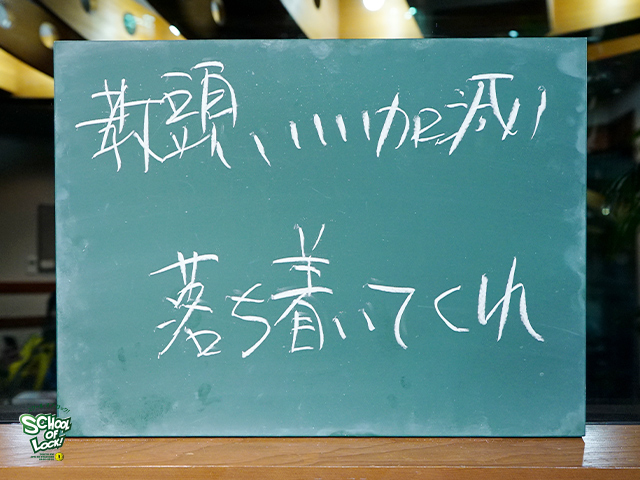 教頭、いいいい加減
落ち着いてくれ
SCHOOL
OF
LOCK!